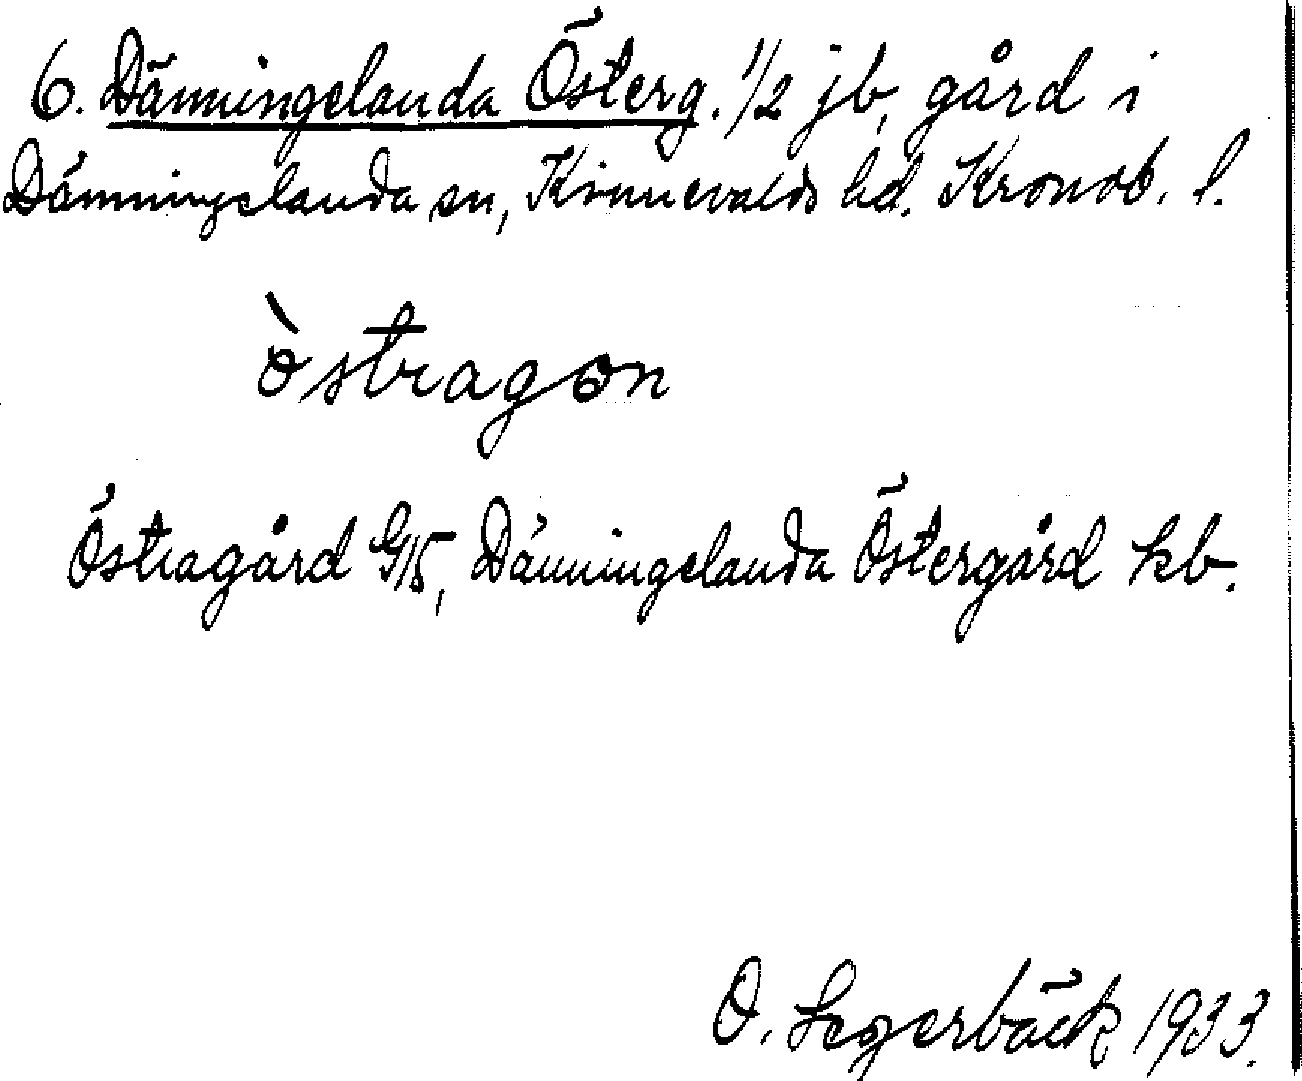 6. Dänningelanda Österg. 1/2 jb, gård i
Dänningelanda sn, Kinnevalds hd. Kronob. l.
òstragon
Östragård G15, Dänningelanda Östergård kb.
O. Segerbäck 1933.